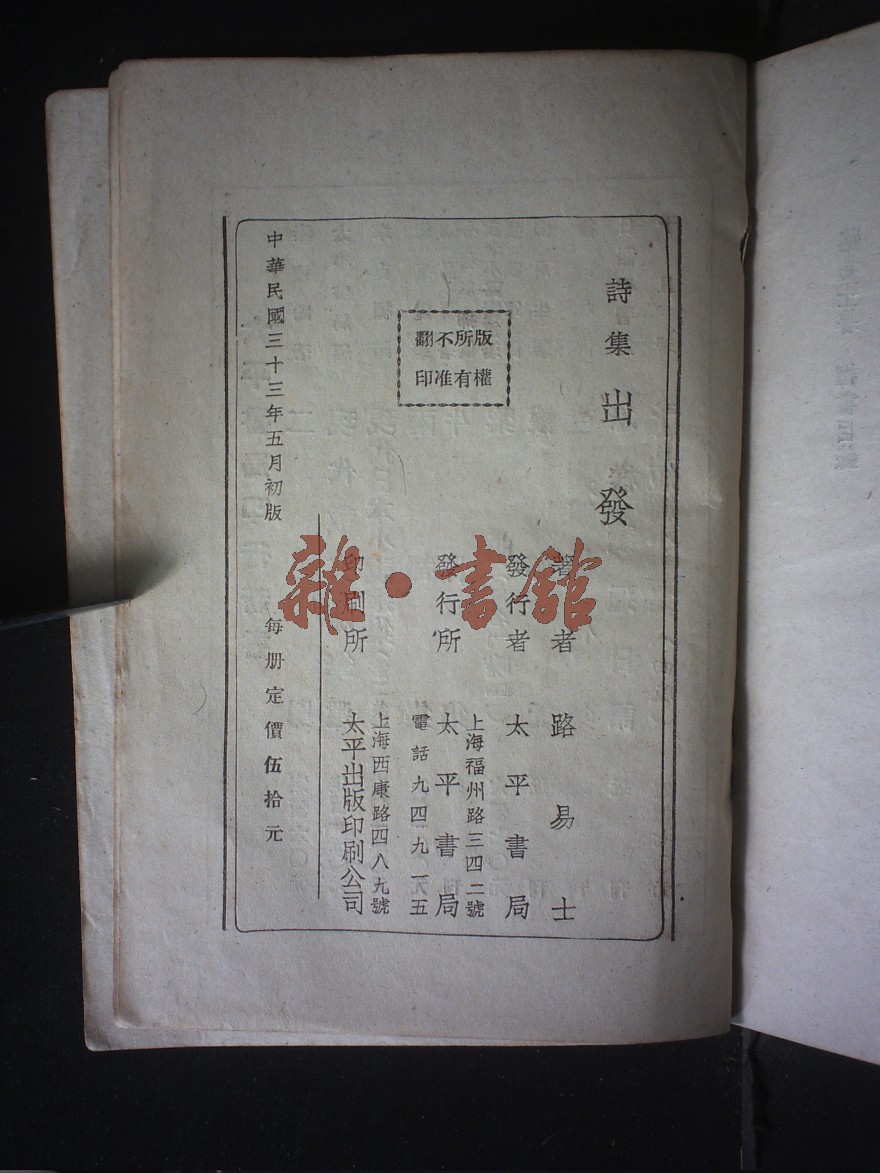 詩集 出發
版權所有
不准翻印
著者 路易士
發行者 太平書局
上海福州路三四二號
發行所 太平書局
電話九四九一五
上海西康路四八九號
印刷所 太平出版印刷公司
中華民國三十三年五月初版 每册定價伍拾元
雜·書館